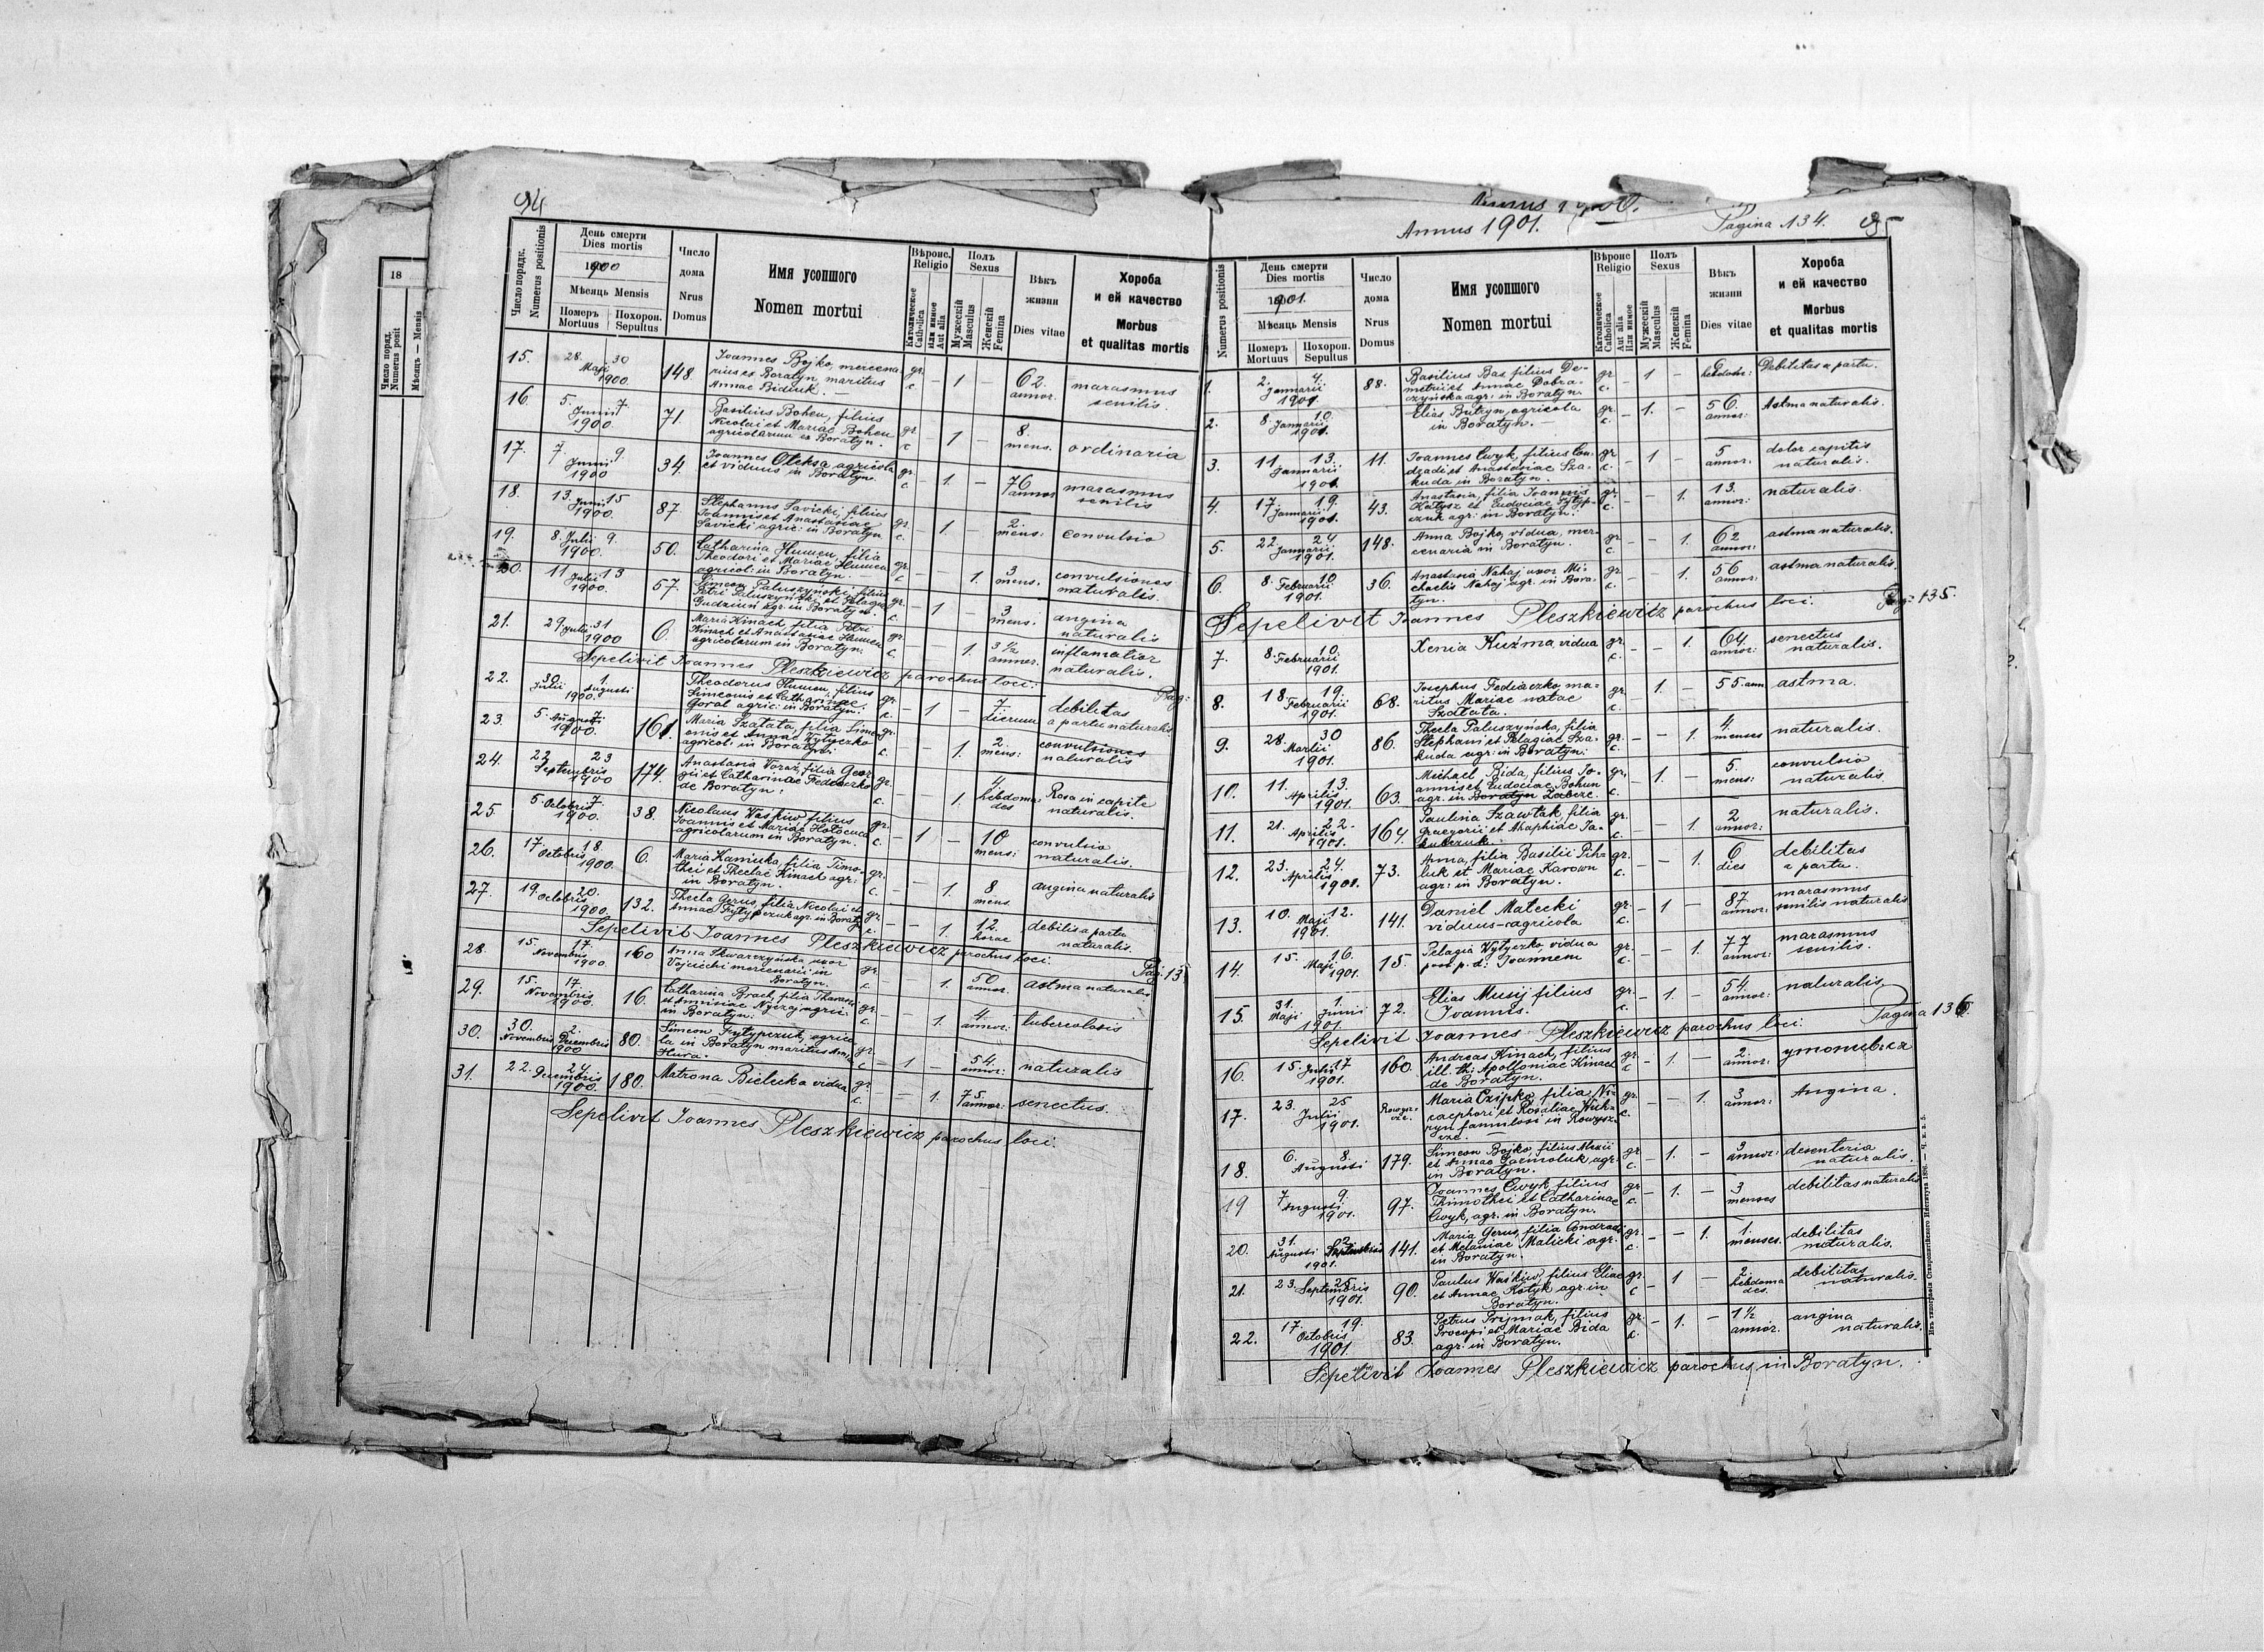 94
Число порядк.
Numerus positionis
День смерти
Dies mortis
1900
Мѣсяць Mensis
Номеръ
Mortuus
Похорон.
Sepultus
Число
дома
Nrus
Domus
Имя усопшого
Nomen mortui
Вѣроис.
Religio
Католическое
Catholica
Или иное
Aut alia
Полъ
Sexus
Мужескій
Masculus
Женскій
Femina
Вѣкъ
жизни
Dies vitae
Хороба
и ей качество
Morbus
et qualitas mortis
15. 28. 30 Maji 1900. 148. Joannes Bojko, mercena-
rius ex Boratyn, maritus
Annae Bidiuk. — gr. c. — 1 — 62. annor. marasmus senilis.
16. 5. 7. Junii 1900. 71. Basilius Bohen, filius
Nicolai et Mariae Bohen
agricolarum ex Boratyn. gr. c. — 1 — 8. mens. ordinaria
17. 7. 9 Junii 1900 34. Joannes Oleksa agricola
et viduus in Boratyn. gr. c. — 1. — 76 annor marasmus senilis
18. 13. Junii 15 1900. 87 Stephanus Savicki, filius
Joannis et Anastasiae
Savicki agric: in Boratyn gr. c. — 1. — 2. mens: convulsio
19. 8. Julii 9. 1900. 50. Catharina Humen, filia
Theodori et Mariae Humen
agricol: in Boratyn. — gr. c — — 1. 3 mens. convulsiones naturalis.
20. 11 Julii 13 1900. 57. Simeon Paluszyński, filius
Petri Paluszyński et Pelagiae
Gudziun agr. in Boratyn. gr. c. — 1 — 3 mens. angina naturalis
21. 29. Julii 31 1900 6. Maria Kinach, filia Petri
Kinach et Anastasiae Humen
agricolarum in Boratyn: gr. c. — — 1. 3 ½ annor. inflamatior naturalis.
Sepelivit Joannes Pleszkiewicz parochus loci. Pag:
22. 30 Julii 1. Augusti 1900. Theodorus Humen, filius
Simeonis et Catharinae
Goral agric: in Boratyn. gr. c. — 1 — 7. dierum debilitas a partu naturalis
23. 5. Augusti 7. 1900. 161. Maria Szałata, filia Sime-
onis et Annae Wytyczko
agricol: in Boratyn. gr. c. — — 1. 2. mens: convulsiones naturalis
24. 22 23 Septembris 1900 174. Anastasia Woraz, filia Geor-
gii et Catharinae Fedeczko
de Boratyn: gr. c. — — 1. 4 hebdoma: des Rosa in capite naturalis.
25. 5. Octobris 7. 1900. 38. Nicolaus Waśkiw filius
Joannis et Mariae Hołocuca
agricolarum in Boratyn. gr. c. — 1 — 10 mens: convulsio naturalis.
26. 17. 18. Octobris 1900. 6. Maria Kaminka, filia Timo-
thei et Theclae Kinach agr:
in Boratyn. gr. c. — — 1. 8 mens. angina naturalis
27. 19. 20. Octobris 1900. 132. Thecla Gerus, filia Nicolai et
Annae Fytypczuk agr. in Boratyn gr. c. — — 1. 12. horae debilis a partu naturalis.
Sepelivit Joannes Pleszkiewicz parochus loci. Pag: 13
28. 15. 17. Novembris 1900. 160 Anna Skwarczyńska uxor
Wojciechi mercenarii in
Boratyn. gr. c — — 1. 50 annor. astma naturalis
29. 15. 17. Novembris 1900. 16. Catharina Brach, filia Tharasii
in Boratyn. gr. c. — — 1. 4 annor: tuberculosis
30. 30. Novembris 2. Decembris 1900 80. Simeon Fytypczuk, agrico-
la in Boratyn maritus Annae
Hura. gr. c — 1 — 54. annor: naturalis
31. 22. 24 Decembris 1900. 180. Matrona Bielecka vidua gr. c. — — 1. 75. annor: senectus.
Sepelivit Joannes Pleszkiewicz parochus loci.
18
Число поряд.
Numerus posit
Мѣсяць — Mensis
Annus 1900.
Annus 1901.
Pagina 134.
95
Numerus positionis
День смерти
Dies mortis
1901.
Мѣсяць Mensis
Номеръ
Mortuus
Похорон.
Sepultus
Число
дома
Nrus
Domus
Имя усопшого
Nomen mortui
Вѣроис
Religio
Католическое
Catholica
Или иное
Aut alia
Полъ
Sexus
Мужескій
Masculus
Женскій
Femina
Вѣкъ
жизни
Dies vitae
Хороба
и ей качество
Morbus
et qualitas mortis
1. 2. 4. Januarii 1901. 88. Basilius Bas filius De-
metrii et Annae Dobra-
czyńska agr: in Boratyn. gr c. — 1 — 6 hebdom: Debilitas a partu.
2. 8. 10. Januarii 1901. Elias Butryn, agricola
in Boratyn. — gr. c. — 1. — 56. annor: Astma naturalis.
3. 11. 13. Januarii 1901. 11. Joannes Cwyk, filius Con-
dradi et Anastasiae Sza-
kuda in Boratyn. gr c. — 1 — 5 annor: dolor capitis naturalis.
4. 17 19. Januarii 1901. 43. Anastasia, filia Joannis
Kotysz et Eudociae Fytyp-
czuk agr: in Boratyn. gr. c. — — 1. 13. annor: naturalis.
5. 22. 24 Januarii 1901. 148. Anna Bojko, vidua, mer-
cenaria in Boratyn. gr c. — — 1. 62 annor: astma naturalis.
6. 8. 10 Februarii 1901. 36. Anastasia Nahaj uxor Mi-
chaelis Nahaj agr. in Bora-
tyn. gr. c. — — 1. 56 annor: astma naturalis.
Sepelivit Joannes Pleszkiewicz parochus loci. Pag: 135.
7. 8. 10. Februarii 1901. Xenia Kuźma vidua gr. c. — — 1. 64. annor: senectus naturalis.
8. 18. 19. Februarii 1901. 68. Josephus Fedeczko, ma-
ritus Mariae natae
Szałata. gr. c. — 1. — 55. ann astma.
9. 28. 30 Martii 1901. 86. Thecla Paluszyńska, filia
Stephani et Pelagiae Sza-
kuda agr: in Boratyn: gr. c. — — 1. 4 menses naturalis.
10. 11. 13. Aprilis 1901. 63. Michael Bida, filius Jo-
annis et Eudociae Bohun
agr. in Boratyn Zaberc. gr. c. — 1. — 5. mens: convulsio naturalis.
11. 21. 22. Aprilis 1901. 164. Paulina Szawłak, filia
Gregorii et Ahaphiae Ja-
kubczuk. gr. c. — — 1. 2 annor: naturalis.
12. 23. 24. Aprilis 1901. 73. Anna, filia Basilii Pih-
luk et Mariae Karown
agr: in Boratyn. gr. c. — — 1. 6 dies debilitas a partu.
13. 10. 12. Maji 1901. 141. Daniel Malecki
viduus-agricola gr. c. — 1 — 87 annor: marasmus senilis naturalis
14. 15. 16. Maji 1901. 15. Pelagia Wytyczko, vidua
post p. d: Joannem gr. c. — — 1. 77 annor: marasmus senilis.
15. 31. Maji 1. Junii 1901. 72. Elias Musij filius
Joannis. gr. c. — 1. — 54. annor: naturalis
Sepelivit Joannes Pleszkiewicz parochus loci. Pagina 136.
16. 15. Julii 17 1901. 160. Andreas Kinach, filius
ill. th: Apolloniae Kinach
de Boratyn. gr. c — 1. — 2. annor: утопився
17. 23. 25 Julii 1901. Maria Czipko, filia Ni-
cephori et Rosaliae
famulosi in gr. c. — — 1. 3 annor: Angina.
18. 6. 8. Augusti 179. Simeon Bojko, filius Alexii
et Annae Jarmoluk agr.
in Boratyn. gr c. — 1. — 3 annor: desenteria naturalis.
19 7 9. Augusti 1901. 97. Joannes Cwyk filius
Thimothei et Catharinae
Cwyk, agr. in Boratyn. gr c. — 1. — 3 menses debilitas naturalis
20. 31. Augusti 2 Septembris 1901. 141. Maria Gerus, filia Condradi
et Melaniae Malicki agr.
in Boratyn. gr. c. — — 1. 1. menses. debilitas naturalis.
21. 23. 25. Septembris 1901. 90. Paulus Waśkiw, filius Eliae
et Annae Kotyk agr. in
Boratyn. gr. c — 1 — 2. hebdoma des. debilitas naturalis.
22. 17. 19. Octobris 1901. 83. Petrus Prijmak, filius
Procopi et Mariae Bida
agr. in Boratyn. gr. c. — 1. — 1 ½ annor. angina naturalis.
Sepelivit Joannes Pleszkiewicz parochus in Boratyn.
Изъ типографіи Ставропигійского Института 1896. — Ч. з. 2.5.